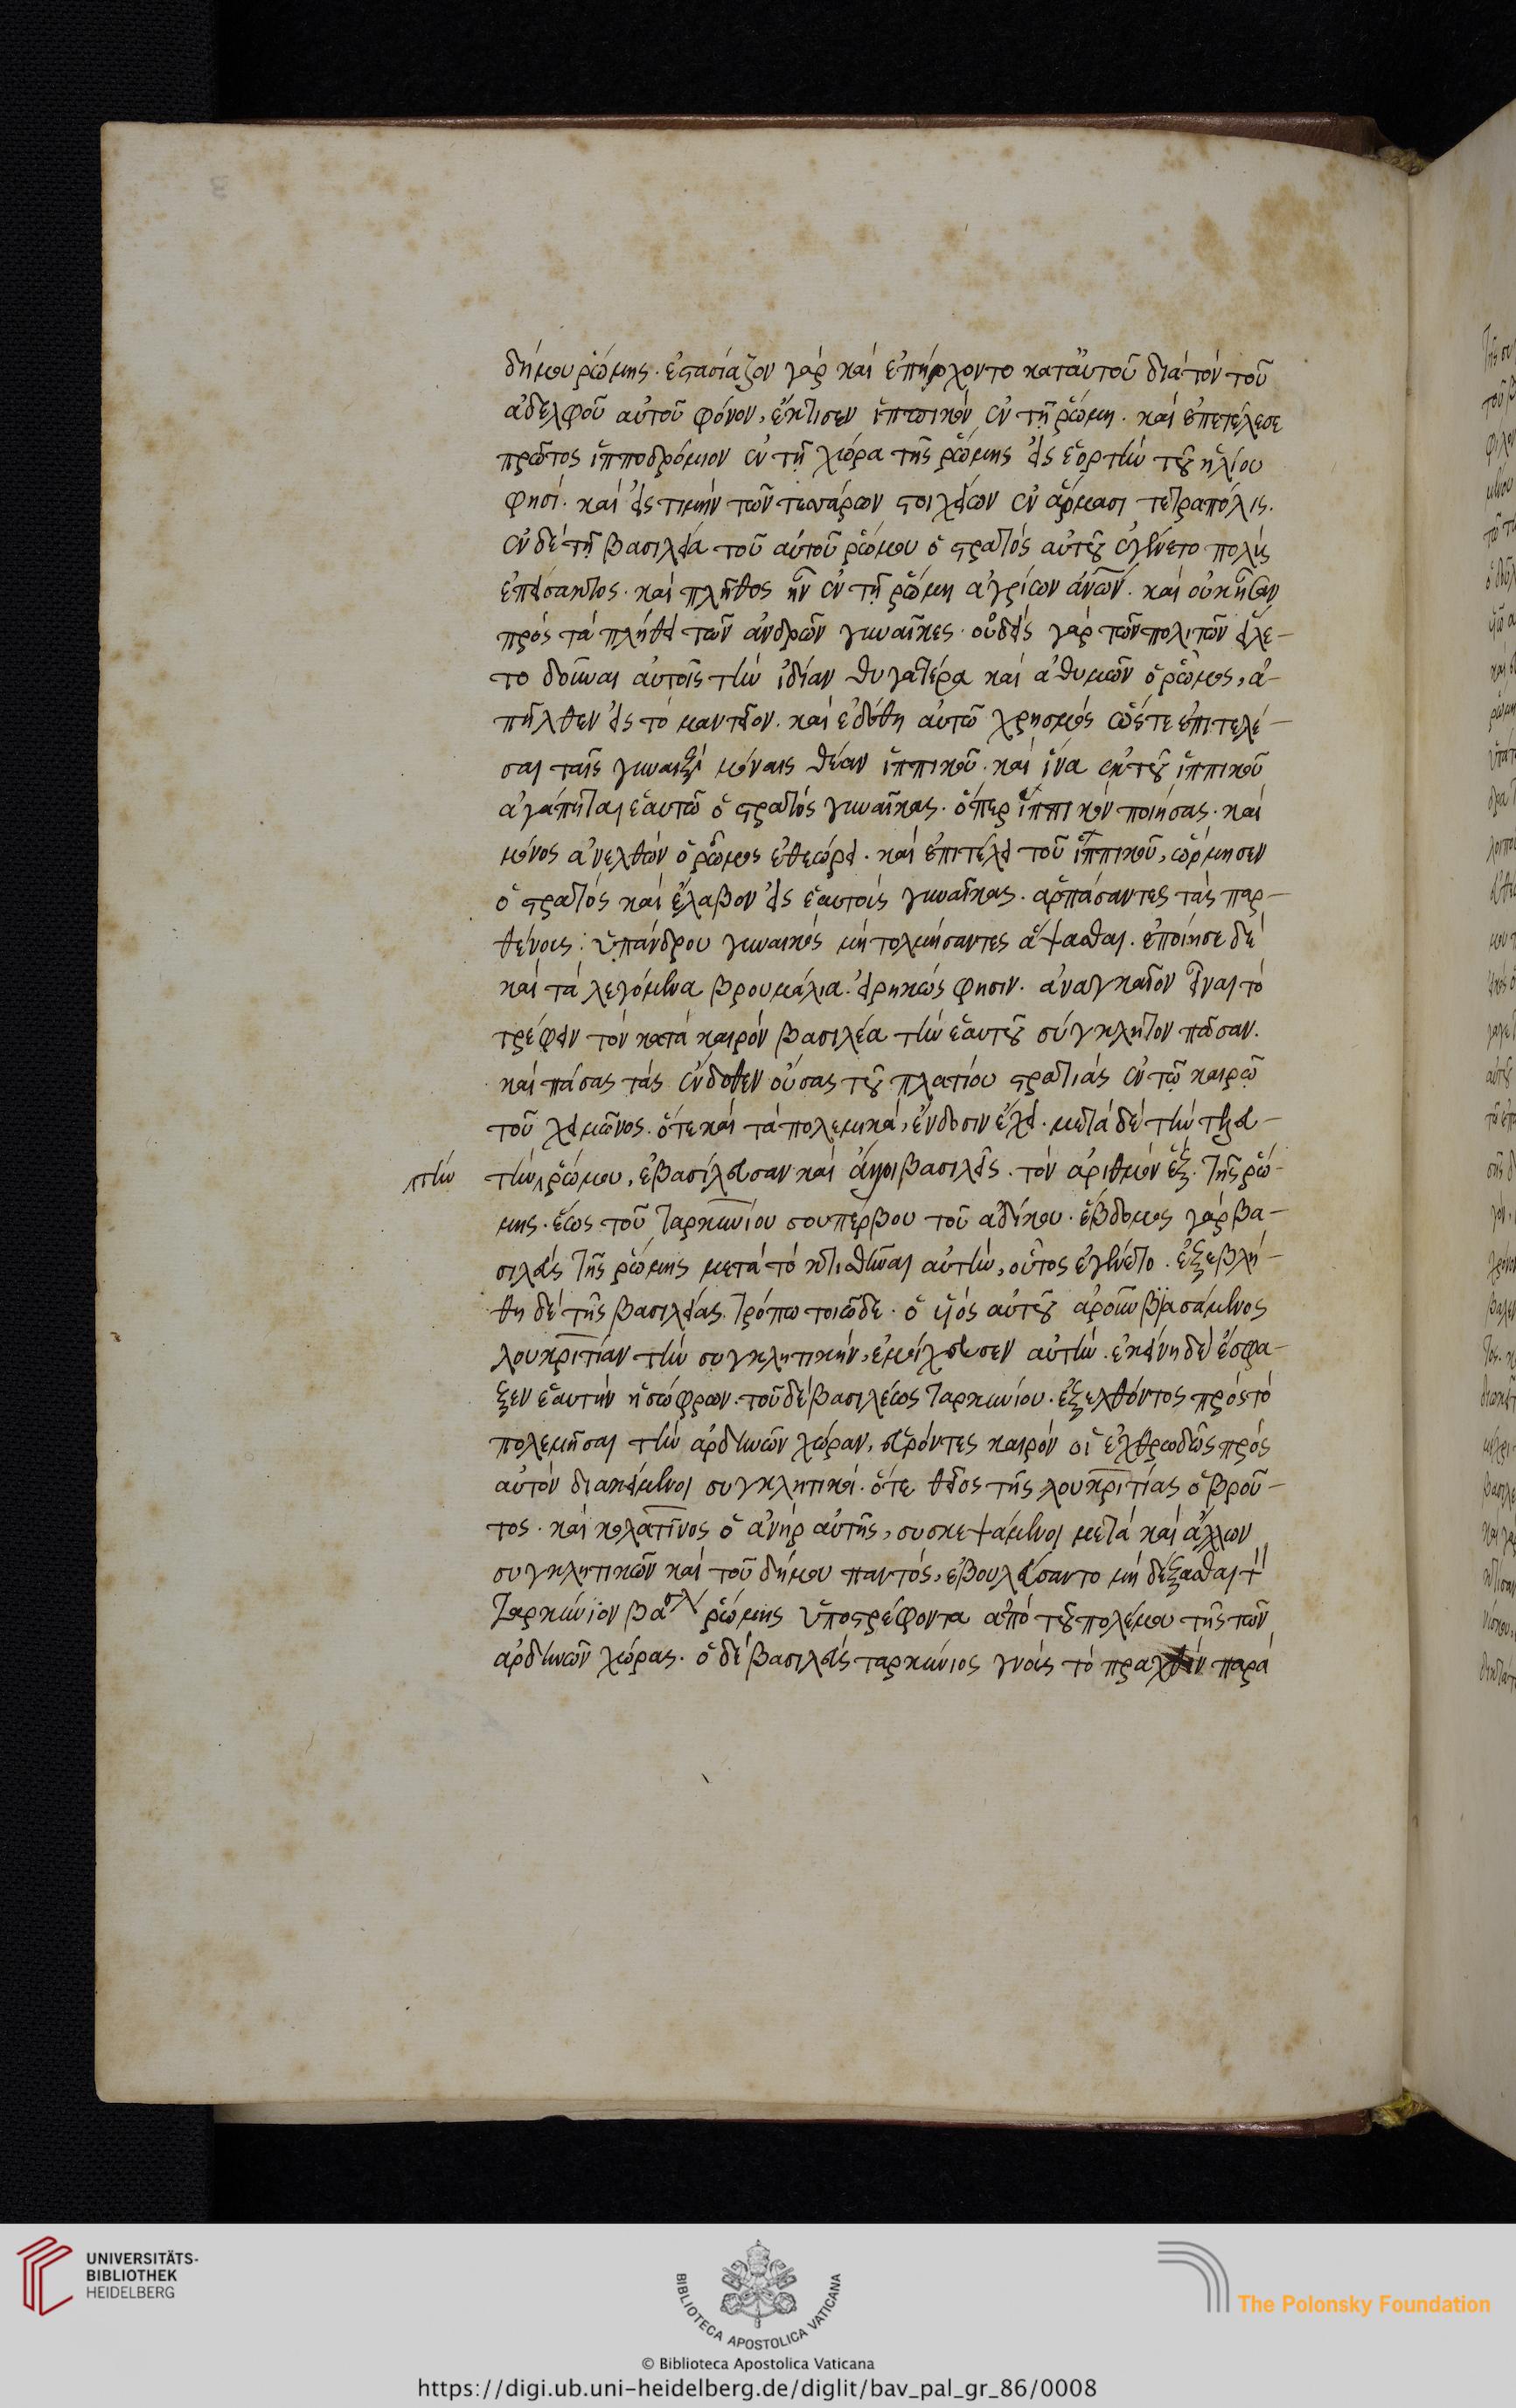 δήμου ῥώμης. ἐστασίαζον γάρ καί ἐπήρχοντο κατ' αὐτοῦ διά τόν τοῦ
ἀδελφοῦ αὐτοῦ φόνον, ἔκτισεν ἱππικόν ἐν τῇ ῥώμη. καί ἐπετέλεσε
πρῶτος ἱπποδρόμιον ἐν τῇ χώρα τῆς ῥώμης εἰς ἑορτήν τοῦ ἡλίου
φησί. καί εἰς τιμήν τῶν τεσσάρων στοιχείων ἐν ἅρμασι τετραπόλις.
ἐν δέ τῇ βασιλεία τοῦ αὐτοῦ ῥώμου ὁ στρατός αὐτοῦ ἐγένετο πολύς
ἐπείσακτος. καί πλῆθος ἦν ἐν τῇ ῥώμη ἀγρίων ἀνῶν. καί οὐκ ἦσαν
πρός τά πλήθει τῶν ἀνδρῶν γυναῖκες. οὐδείς γάρ τῶν πολιτῶν εἵλε-
το δοῦναι αὐτοῖς τήν ἰδίαν θυγατέρα καί ἀθυμῶν ὁ ῥῶμος, ἀ-
πῆλθεν εἰς τό μαντεῖον. καί ἐδόθη αὐτῶ χρησμός ὥστε ἐπιτελέ-
σαι ταῖς γυναιξί μόναις θέαν ἱππικοῦ. καί ἵνα ἐκ τοῦ ἱππικοῦ
ἀγάπηται ἑαυτῶ ὁ στρατός γυναῖκας. ὅπερ ἱππικόν ποιήσας. καί
μόνος ἀνελθών ὁ ῥῶμος ἐθεώρει. καί ἐπιτέλει τοῦ ἱππικοῦ, ὥρμησεν
ὁ στρατός καί ἔλαβον εἰς ἑαυτούς γυναῖκας. ἁρπάσαντες τάς παρ-
θένους: ὑπάνδρου γυναικός μή τολμήσαντες ἅψασθαι. ἐποίησε δέ
καί τά λεγόμενα βρουμάλια. εἰρηκώς φησιν. ἀναγκαῖον εἶναι τό
τρέφειν τόν κατά καιρόν βασιλέα τήν ἑαυτοῦ σύγκλητον πᾶσαν.
καί πάσας τάς ἔνδοθεν οὔσας τοῦ πλατίου στρατιάς ἐν τῷ καιρῷ
τοῦ χειμῶνος. ὅτε καί τά πολεμικά, ἔνδοσιν ἔχει. μετά δέ τήν τελευ-
τήν ῥώμου, ἐβασίλευσαν καί ἄλλοι βασιλεῖς. τόν ἀριθμόν ἕξ. τῆς ῥώ-
τήν
μης. ἕως τοῦ ταρκυνίου σουπέρβου τοῦ ἀδίκου. ἕβδομος γάρ βα-
σιλεύς τῆς ῥώμης μετά τό κτισθῆναι αὐτήν, οὗτος ἐγένετο. ἐξεβλή-
θη δέ τῆς βασιλείας τρόπω τοιῶδε. ὁ υἱός αὐτοῦ ἀροῦν βιασάμενος
λουκριτίαν τήν συγκλητικήν, ἐμοίχευσεν αὐτήν. ἐκείνη δέ ἔσφα-
ξεν ἑαυτήν ἡ σώφρων. τοῦ δέ βασιλέως ταρκυνίου. ἐξελθόντος πρός τό
πολεμῆσαι τήν ἀρδηνῶν χώραν, εὑρόντες καιρόν οἱ ἐχθρωδῶς πρός
αὐτόν διακείμενοι συγκλητικοί. ὅτε θεῖος τῆς λουκριτίας ὁ βροῦ-
τος. καί κολατῖνος ὁ ἀνήρ αὐτῆς, συσκεψάμενοι μετά καί ἄλλων
συγκλητικῶν καί τοῦ δήμου παντός, ἐβουλεύσαντο μή δέξασθαι τ
ταρκύνιον βασιλ ῥώμης ὑποστρέφοντα ἀπό τοῦ πολέμου τῆς τῶν
ἀρδηνῶν χώρας. ὁ δέ βασιλεύς ταρκύνιος γνούς τό πραχθέν παρά
UNIVERSITÄTS-
BIBLIOTHEK
HEIDELBERG
BIBLIOTECA APOSTOLICA VATICANA
The Polonsky Foundation
© Biblioteca Apostolica Vaticana
https://digi.ub.uni-heidelberg.de/diglit/bav_pal_gr_86/0008